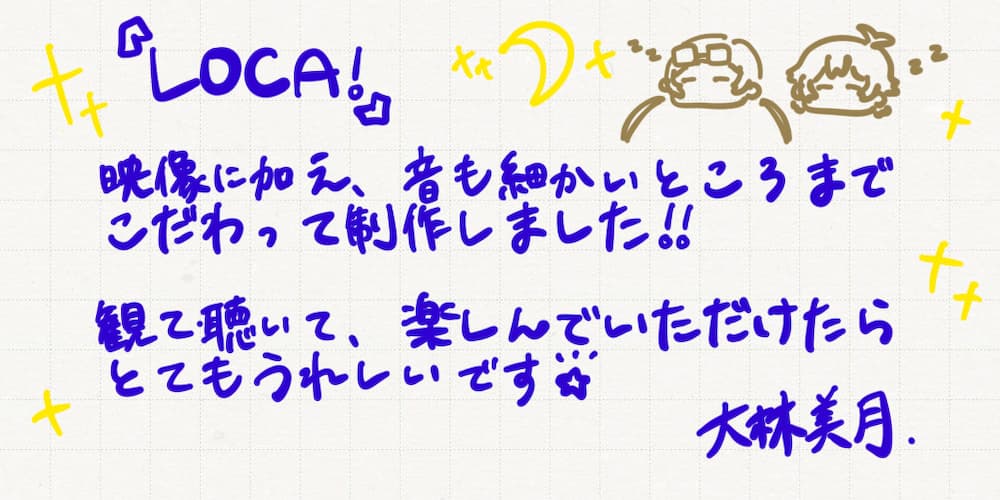 『LOCA!』
zzz
zzz
映像に加え、音も細かいところまで
こだわって制作しました!!
観て聴いて、楽しんでいただけたら
とてもうれしいです☆
大林美月.